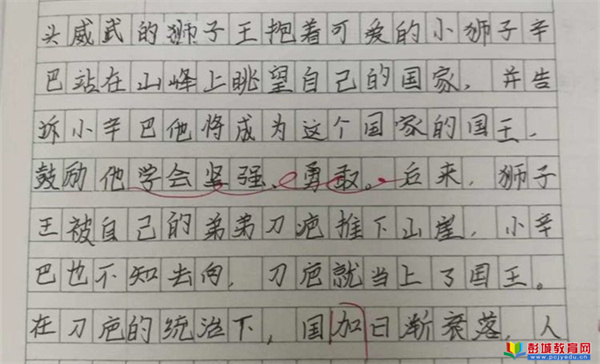 头威武的狮子王抱着可爱的小狮子辛
巴站在山峰上眺望自己的国家，并告
诉小辛巴他将成为这个国家的国王，
鼓励他学会坚强、勇敢。后来，狮子
王被自己的弟弟刀疤推下山崖，小辛
巴也不知去向，刀疤就当上了国王。
在刀疤的统治下，国加日渐衰落，人
彭城教育网
www.pcjyedu.cn